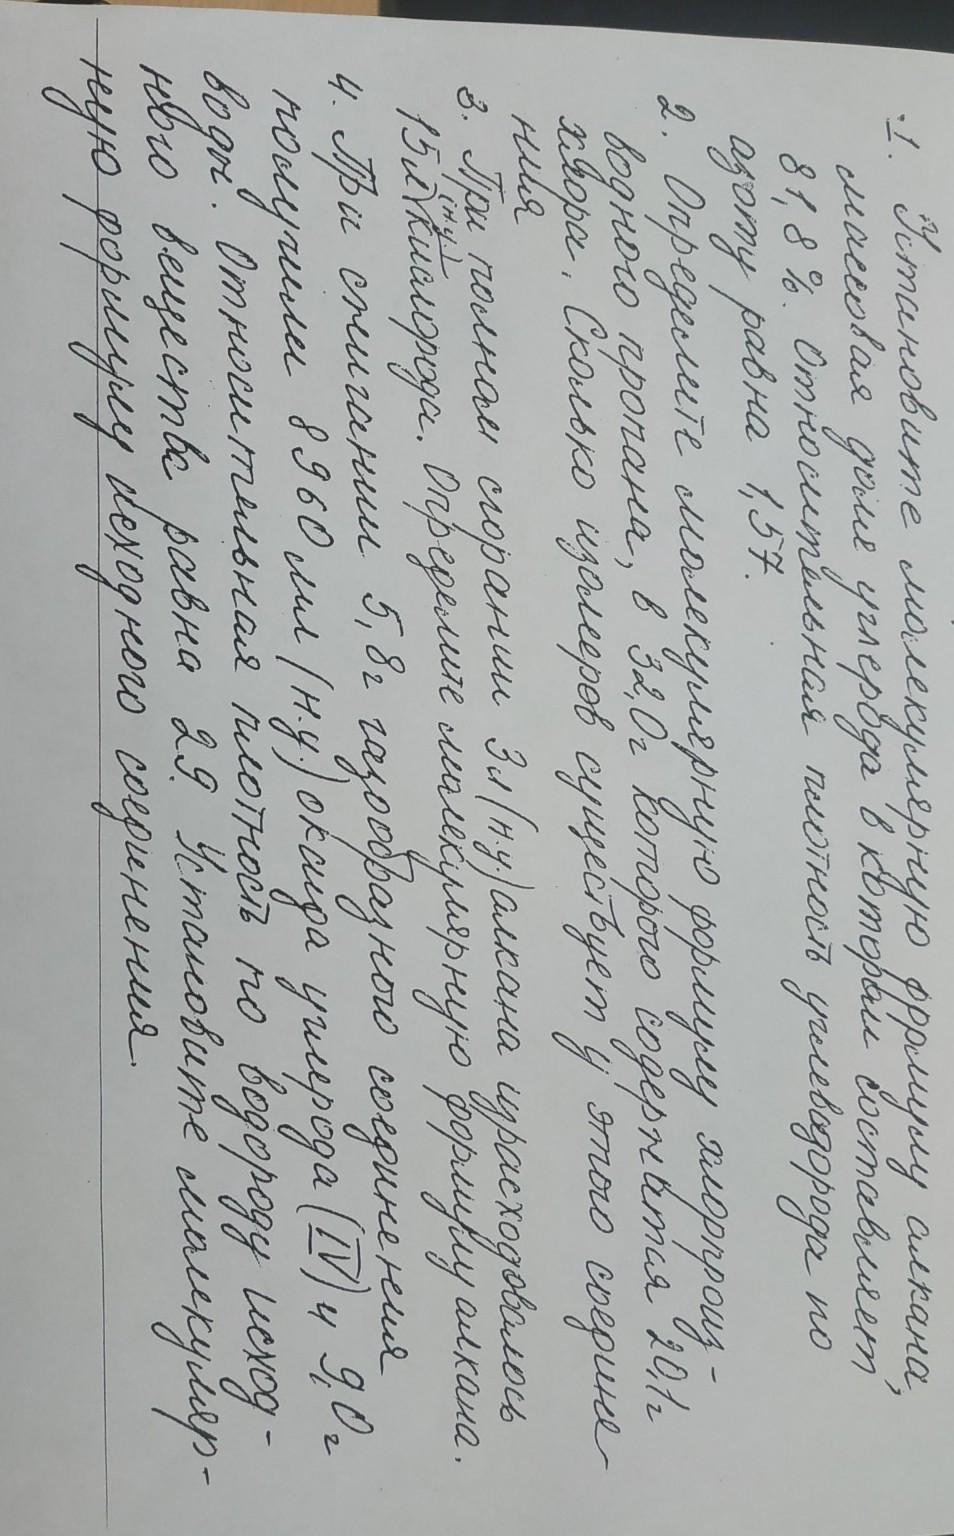 1. Установите молекулярную формулу алкана,
массовая доля углерода в котором составляет
81,8%. Относительная плотность углеводорода по
азоту равна 1,57.
2. Определите молекулярную формулу хлорпроиз-
водного пропана, в 32,0г которого содержится 20,1г
хлора. Сколько изомеров существует у этого соедине-
ния
3. При полном сгорании 3л (н.у.) алкана израсходовалось
15л (н.у.) кислорода. Определите молекулярную формулу алкана.
4. При сжигании 5,8г газообразного соединения
получили 8960 мл (н.у.) оксида углерода (IV) и 9,0г
воды. Относительная плотность по водороду исход-
ного вещества равна 29. Установите молекуляр-
ную формулу исходного соединения.